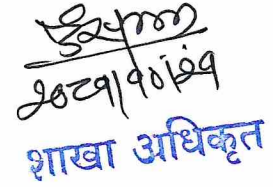 २०८१/१०/२१
शाखा अधिकृत